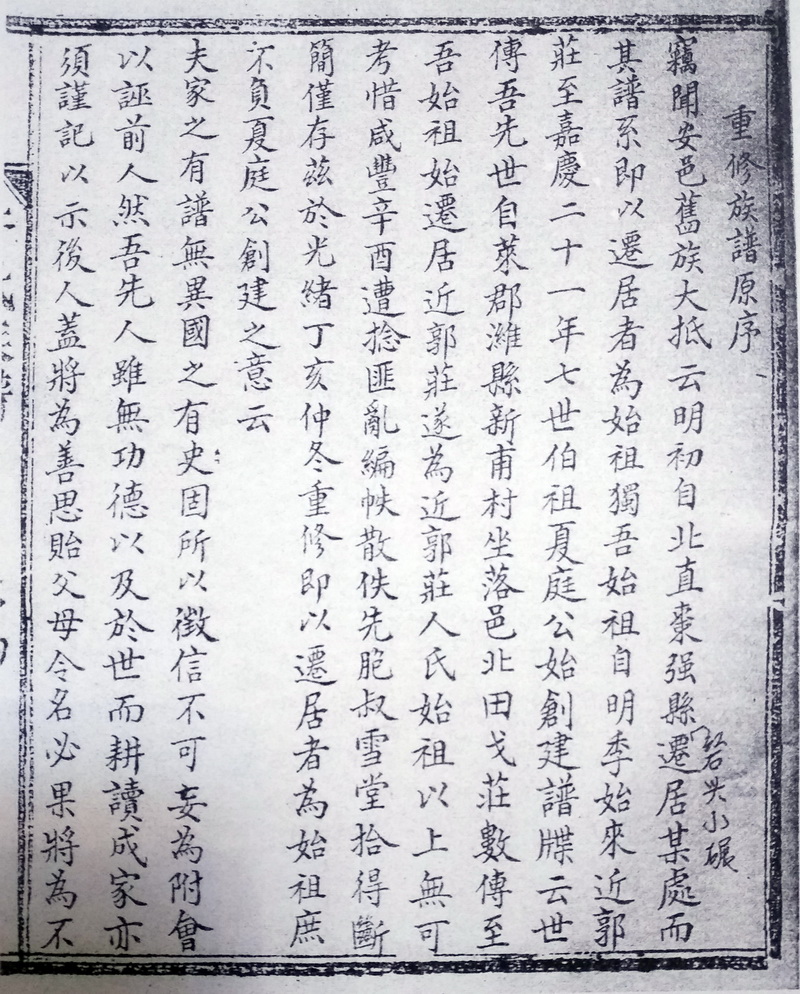 重修族譜原序
竊聞安邑舊族大抵云明初自北直棗强縣遷居某處而
其譜系即以遷居者為始祖獨吾始祖自明季始來近郭
莊至嘉慶二十一年七世伯祖夏庭公始創建譜牒云世
傳吾先世自萊郡濰縣新甫村坐落邑北田戈莊數傳至
吾始祖始遷居近郭莊遂為近郭莊人氏始祖以上無可
考惜咸豐辛酉遭捻匪亂編帙散佚先胞叔雪堂拾得斷
簡僅存茲於光緒丁亥仲冬重修即以遷居者為始祖庶
不負夏庭公創建之意云
夫家之有譜無異國之有史固所以徵信不可妄為附會
以誣前人然吾先人雖無功德以及於世而耕讀成家亦
須謹記以示後人蓋將為善思貽父母令名必果將為不